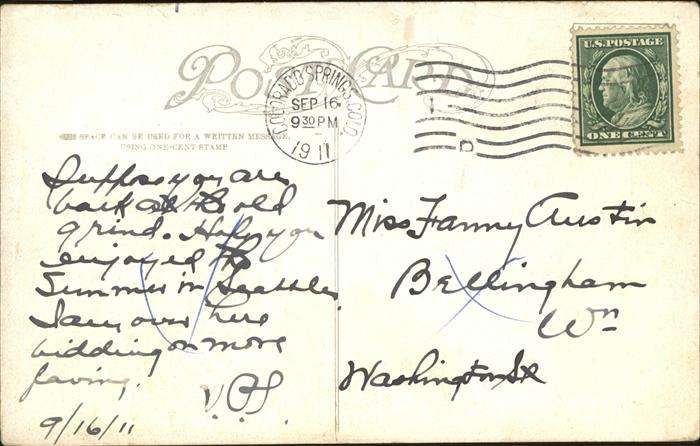 POST CARD
U.S. POSTAGE
ONE CENT
COLORADO SPRINGS, COLO.
SEP 16
9 30 PM
1911
SPACE CAN BE USED FOR A WRITTEN MESSAGE,
USING ONE-CENT STAMP
Suppose you are
back at the old
grind. Hope you
enjoyed the
Summer in Seattle
I am over here
bidding on more
paving.
9/16/11
Miss Fanny Austin
Bellingham
Wn
Washington St